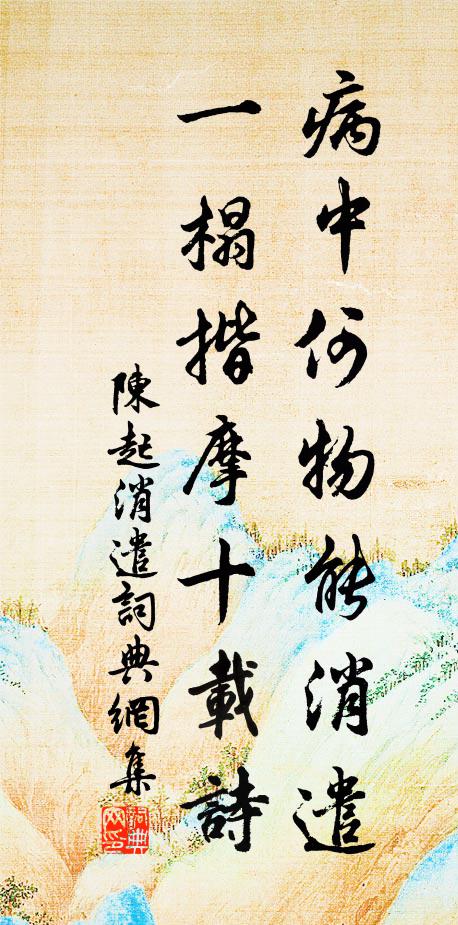 病中何物能消遣
一榻揩摩十載詩
陳起消遣詞典網集
詞典網印